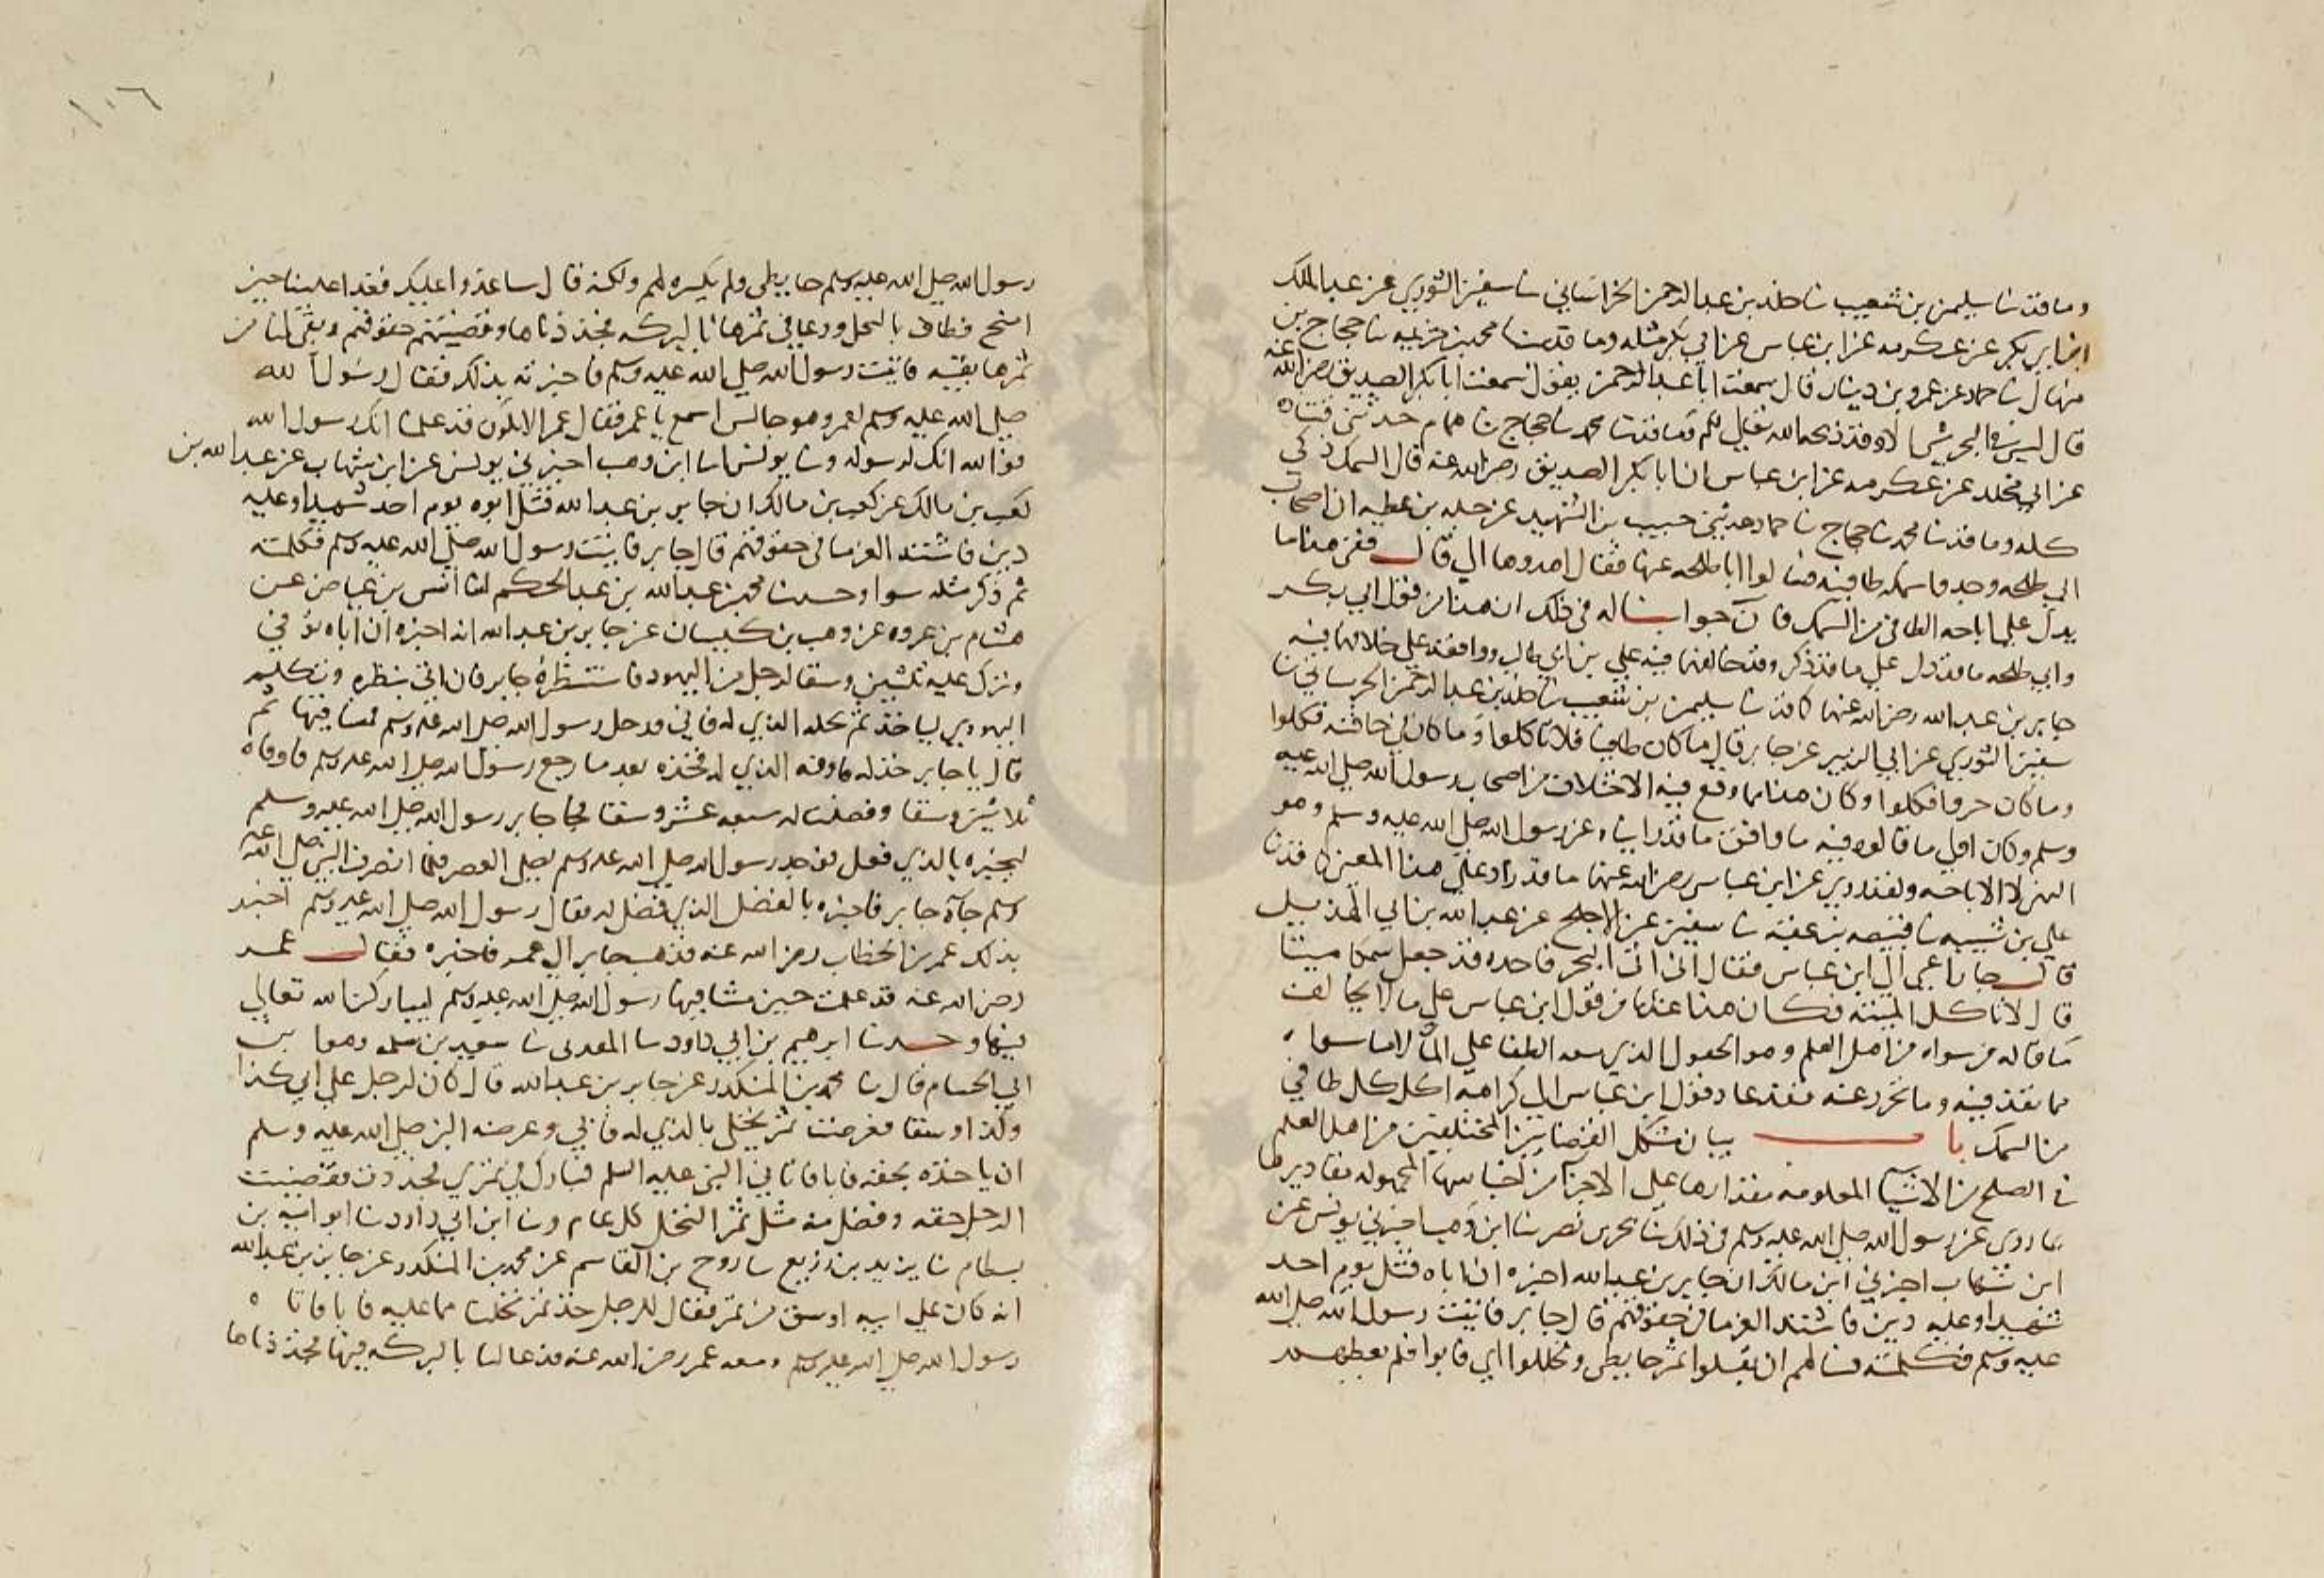 وما قد نا سليمن بن شعيب نا خالد بن عبد الرحمن الخراساني نا سفين الثوري عن عبد الملك
ابن ابي بكر عن عكرمه عن ابن عباس عن ابي بكر مثله وما قد نا محمد بن خزيمه نا حجاج بن
منهال نا حماد عن عمرو بن دينار قال سمعت ابا عبد الرحمن يقول سمعت ابا بكر الصديق رضي الله عنه
قال ليس في البحر شي الا وقد ذبحه الله تعالي لكم وما قد نا محمد نا حجاج نا همام حدثني قتاده
عن ابي مخلد عن عكرمه عن ابن عباس ان ابا بكر الصديق رضي الله عنه قال السمك ذكي
كله وما قد نا محمد نا حجاج نا حماد حدثني حبيب بن الشهيد عن جبله بن عطيه ان اصحاب
ابي طلحه وجدوا سمكه طافيه فسالوا ابا طلحه عنها فقال اهدوها الي قال ففي هذا ما
يدل علي اباحه الطافي من السمك فان جوابنا له في ذلك ان هذا من قول ابي بكر
وابي طلحه ما قد دل علي ما قد ذكر وقد خالفهما فيه علي بن ابي طالب ووافقه علي خلافهما فيه
جابر بن عبد الله رضي الله عنهما كما قد نا سليمن بن شعيب نا خالد بن عبد الرحمن الخرساني نا
سفين الثوري عن ابي الزبير عن جابر قال ما كان طافيا فلا تاكلوا وما كان في حافته فكلوا
وما كان حرفا فكلوا وكان هذا مما وقع فيه الاختلاف من اصحاب رسول الله صلي الله عليه
وسلم وكان اولي ما قالوه فيه ما وافق ما قد رويناه عن رسول الله صلي الله عليه وسلم وهو
النهي لا الاباحه ولقد روي عن ابن عباس رضي الله عنهما ما قد زاد علي هذا المعني كما قد نا
علي بن شيبه نا قبيصه بن عقبه نا سفين عن الاجلح عن عبد الله بن ابي الهذيل
قال جا اعرابي الي ابن عباس فقال اني اتي البحر فاجده قد جعل سمكا ميتا
قال لا تاكل الميته فكان هذا عندنا من قول ابن عباس علي ما لا يخالف
ما قاله من سواه من اهل العلم وهو المحمول الذي الطفا علي الما لا ما سواه
مما نفذ فيه وما عنه فقد عاد قول ابن عباس الي كراهه اكل كل طافي
من السمك با ب بيان مشكل القضا بين المختلفين من اهل العلم
في الصلح من الاشيا المعلومه مقدارها علي الاجزا من اجناسها المجهوله مقاديرها
بما روي عن رسول الله صلي الله عليه وسلم في ذلك نا بحر بن نصر نا ابن وهب اخبرني يونس عن
ابن شهاب اخبرني ابن مالك ان جابر بن عبد الله اخبره ان اباه قتل يوم احد
شهيدا وعليه دين فاشتد الغرما في حقوقهم قال جابر فاتيت رسول الله صلي الله
عليه وسلم فكلمته فسالهم ان يقبلوا ثمر حايطي ويحللوا ابي فابوا فلم يعطهم
رسول الله صلي الله عليه وسلم حايطي ولم يكسره لهم ولكنه قال ساغدوا عليك فغدا علينا حين
اصبح فطاف بالنخل ودعا في ثمرها بالبركه فجددناها وقضيتهم حقوقهم وبقي لنا من
ثمرها بقيه فاتيت رسول الله صلي الله عليه وسلم فاخبرته بذلك فقال رسول الله
صلي الله عليه وسلم لعمر وهو جالس اسمع يا عمر فقال عمر الا يكون قد علمنا انك رسول الله
فوالله انك لرسوله ونا يونس نا ابن وهب اخبرني يونس عن ابن شهاب عن عبد الله بن
كعب بن مالك عن كعب بن مالك ان جابر بن عبد الله قتل ابوه يوم احد شهيدا وعليه
دين فاشتد الغرما في حقوقهم قال جابر فاتيت رسول الله صلي الله عليه وسلم فكلمته
ثم ذكر مثله سوا وحدثنا محمد بن عبد الله بن عبد الحكم انا انس بن عياض عن
هشام بن عروه عن وهب بن كيسان عن جابر بن عبد الله انه اخبره ان اباه توفي
وترك عليه ثلثين وسقا لرجل من اليهود فاستنظره جابر فابي ينظره وتكليم
اليهودي لياخذ ثمر نخله الذي له فابي فدخل رسول الله صلي الله عليه وسلم فمشا فيها ثم
قال يا جابر جد له فاوفه الذي له فجده بعد ما رجع رسول الله صلي الله عليه وسلم فاوفاه
ثلاثين وسقا وفضلت له سبعه عشر وسقا فجا جابر رسول الله صلي الله عليه وسلم
ليخبره بالذي فعل فوجد رسول الله صلي الله عليه وسلم يصلي العصر فلما انصرف النبي صلي الله عليه
وسلم جاه جابر فاخبره بالفضل الذي فضل له فقال رسول الله صلي الله عليه وسلم اخبر
بذلك عمر بن الخطاب رضي الله عنه فذهب جابر الي عمر فاخبره فقال عمر
رضي الله عنه قد علمت حين مشا فيها رسول الله صلي الله عليه وسلم ليباركن الله تعالي
فيها وحدثنا ابرهيم بن ابي داود نا المقدمي نا سعيد بن سلمه وهو ابن
ابي الحسام قال نا محمد بن المنكدر عن جابر بن عبد الله قال كان لرجل علي ابي كذا
وكذا وسقا فعرضت ثمر نخلي بالذي له فابي وعرضه النبي صلي الله عليه وسلم
ان ياخذه بحقه فابا فاتاني النبي عليه السلم فبارك لي في ثمري فجددت فقضيت
الرجل حقه وفضل منه مثل ثمر النخل كل عام ونا ابن ابي داود نا ابو اميه بن
بسطام نا يزيد بن زريع نا روح بن القاسم عن محمد بن المنكدر عن جابر بن عبد الله
انه كان علي ابيه اوسق من تمر فقال للرجل خذ ثمر نخلنا مما عليه فابا فاتا ه
رسول الله صلي الله عليه وسلم ومعه عمر رضي الله عنه فدعا لنا بالبركه فيها فجددناها
١٠٦